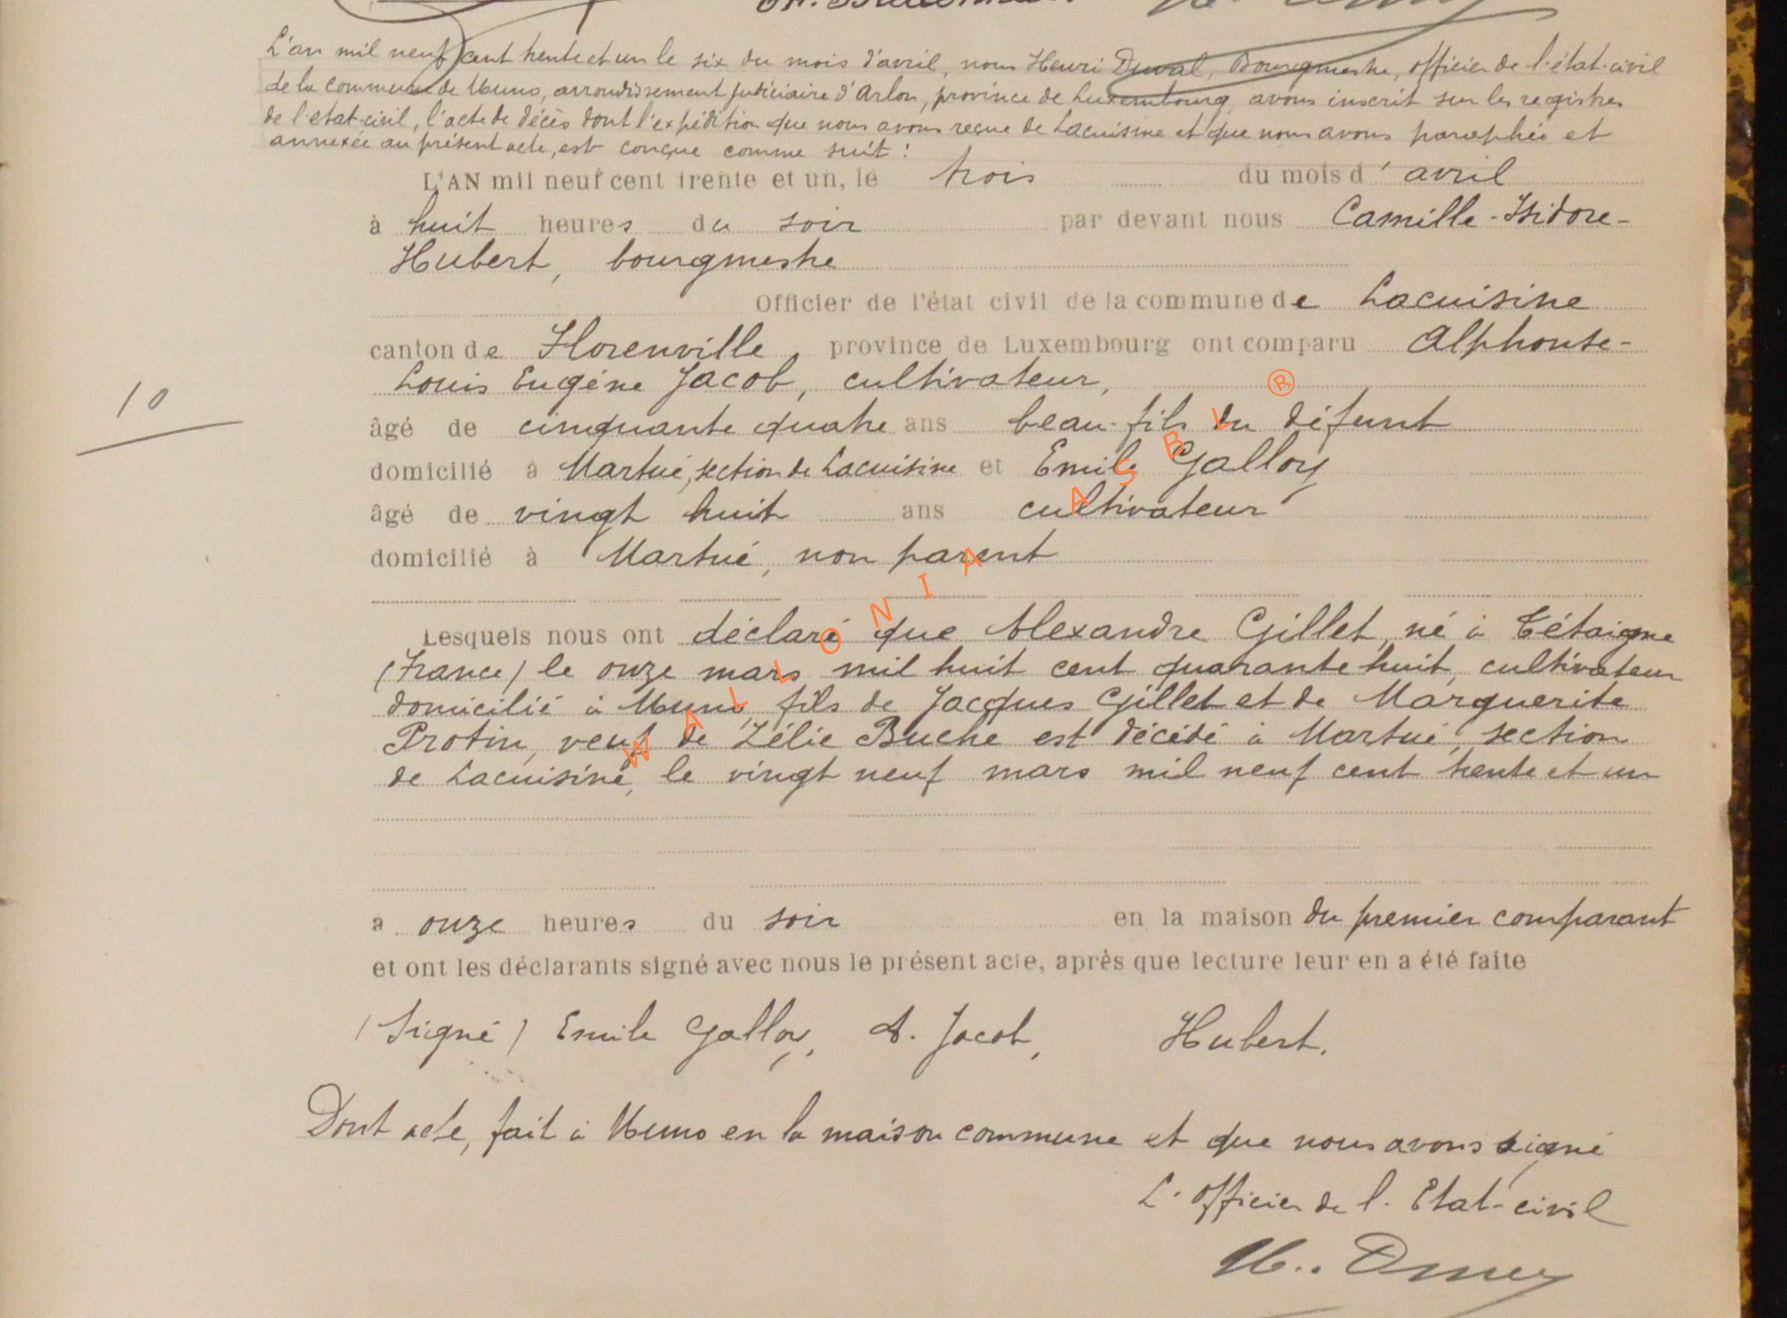 L'an mil neuf cent trente et un le six du mois d'avril, nous Henri Duval, Bourgmestre, officier de l'état-civil
de la commune de Muno, arrondissement judiciaire d'Arlon, province de Luxembourg, avons inscrit sur les registres
de l'état-civil, l'acte de décès dont l'expédition que nous avons reçue de Lacuisine et que nous avons paraphée et
annexée au présent acte, est conçue comme suit :
L'AN mil neuf cent trente et un, le trois du mois d' avril
à huit heures du soir par devant nous Camille-Isidore-
Hubert, bourgmestre
Officier de l'état civil de la commune de Lacuisine
canton de Florenville, province de Luxembourg ont comparu Alphonse-
Louis Eugène Jacob, cultivateur,
10
âgé de cinquante quatre ans beau-fils du défunt
domicilié à Martué, section de Lacuisine et Emile Galloy
âgé de vingt huit ans cultivateur
domicilié à Martué, non parent
Lesquels nous ont déclaré que Alexandre Gillet, né à Tétaigne
(France) le onze mars mil huit cent quarante huit, cultivateur
domicilié à Muno, fils de Jacques Gillet et de Marguerite
Protin, veuf de Zélie Buche est décédé à Martué, section
de Lacuisine, le vingt neuf mars mil neuf cent trente et un
WALLONIA ASBL ®
a onze heures du soir en la maison du premier comparant
et ont les déclarants signé avec nous le présent acte, après que lecture leur en a été faite
(Signé) Emile Galloy, A. Jacob, Hubert.
Dont acte, fait à Muno en la maison commune et que nous avons signé
L'officier de l'Etat-civil